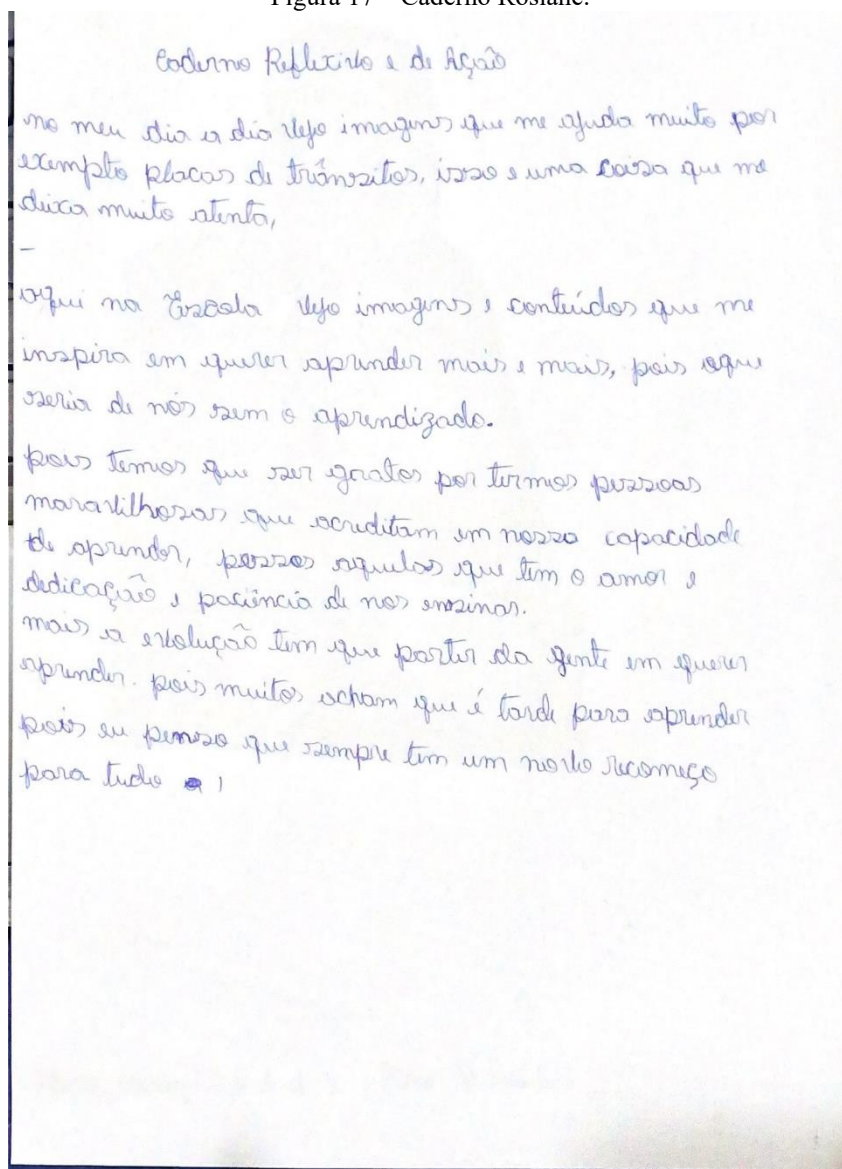 Figura 17 – Caderno Rosiane.
Caderno Reflexivo e de Ação
no meu dia a dia vejo imagens que me ajuda muito por
exemplo placas de trânsitos, isso e uma coisa que me
deixa muito atenta,
-
aqui na Escola vejo imagens e conteúdos que me
inspira em querer aprender mais e mais, pois oque
seria de nós sem o aprendizado.
pois temos que ser gratos por termos pessoas
maravilhosas que acreditam em nossa capacidade
de aprender, pessoas aquelas que tem o amor e
dedicação e paciência de nos ensinar.
mais a evolução tem que partir da gente em querer
aprender. pois muitos acham que é tarde para aprender
pois eu penso que sempre tem um novo recomeço
para tudo